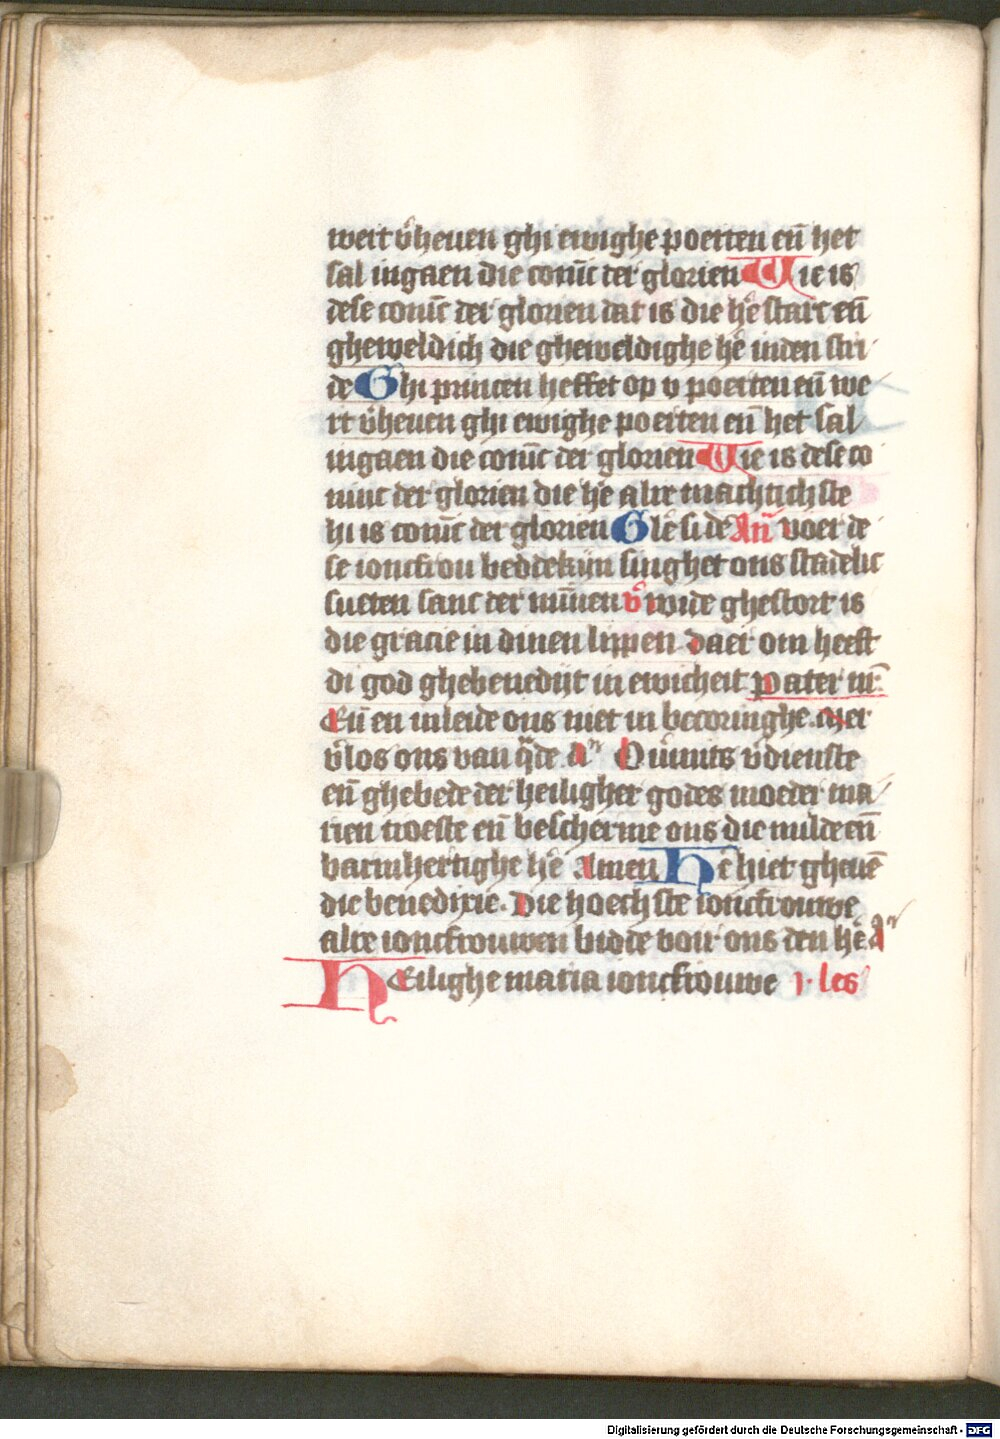 wert v̾heuen ghi ewighe poerten en̄ het
sal ingaen die conīc der glorien Wie is
dese conīc der glorien dat is die he͛ starc en̄
gheweldich die gheweldighe he͛ inden stri
de Ghi princen heffet op v poerten en̄ we
rt v̾heuen ghi ewighe poerten en̄ het sal
ingaen die conīc der glorien Wie is dese co
ninc der glorien die he͛ alre machtichste
hi is conīc der glorien Glē si de An̄ voer de
se ioncfrou beddekijn singhet ons stadelic
sueten sanc der mīnen v̾ wide ghestort is
die gracie in dinen lippen daer om heeft
di god ghebenedijt in ewicheit Pater nr̄
En̄ en inleide ons niet in becoringhe. Mer
v̾los ons van q̄de. an̄ Ou̾mits v̾dienste
en̄ ghebede der heiligher godes moeder ma
rien troeste en̄ bescherme ons die milde en̄
barmhertighe he͛ Amen He͛ hiet gheuē
die benedixie. Die hoechste ioncfrouwe
alre ioncfrouwen bidde voir ons den he͛ an̄
Heilighe maria ioncfrouwe j. les
Digitalisierung gefördert durch die Deutsche Forschungsgemeinschaft - DFG